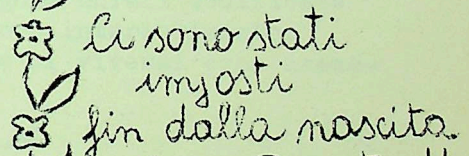 Ci sono stati
imposti
fin dalla nascita